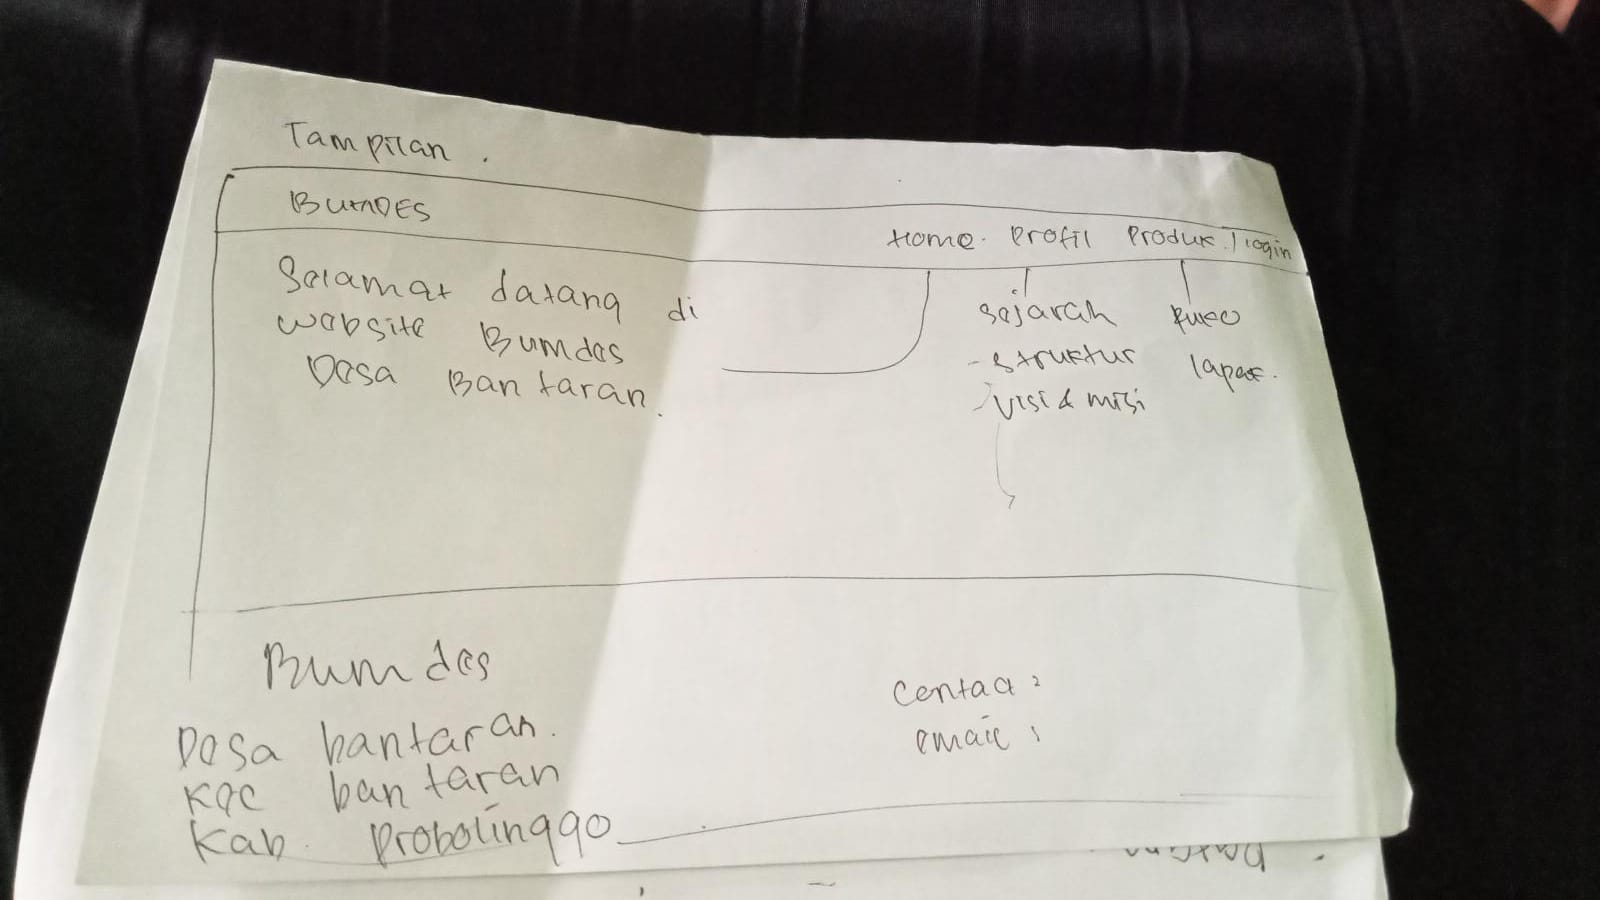 Tampilan.
BUMDES
Home. Profil Produk. / login
Selamat datang di
website Bumdes
Desa Bantaran.
Sejarah
- Struktur
- Visi & misi
Ruko
lapak.
Bumdes
Desa bantaran.
Kec bantaran
Kab. Probolinggo
Contact :
email :